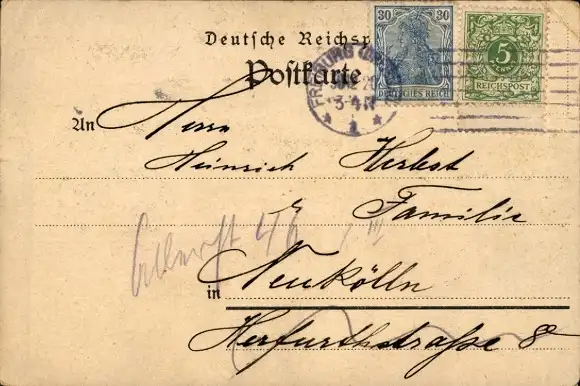 Deutsche Reichsp
Postkarte
30 30
DEUTSCHES REICH
5
REICHSPOST
FREIBURG
3-4N
An Herrn
Heinrich Herbst
& Familie
in Neukölln
Herfurthstraße 8
46
III